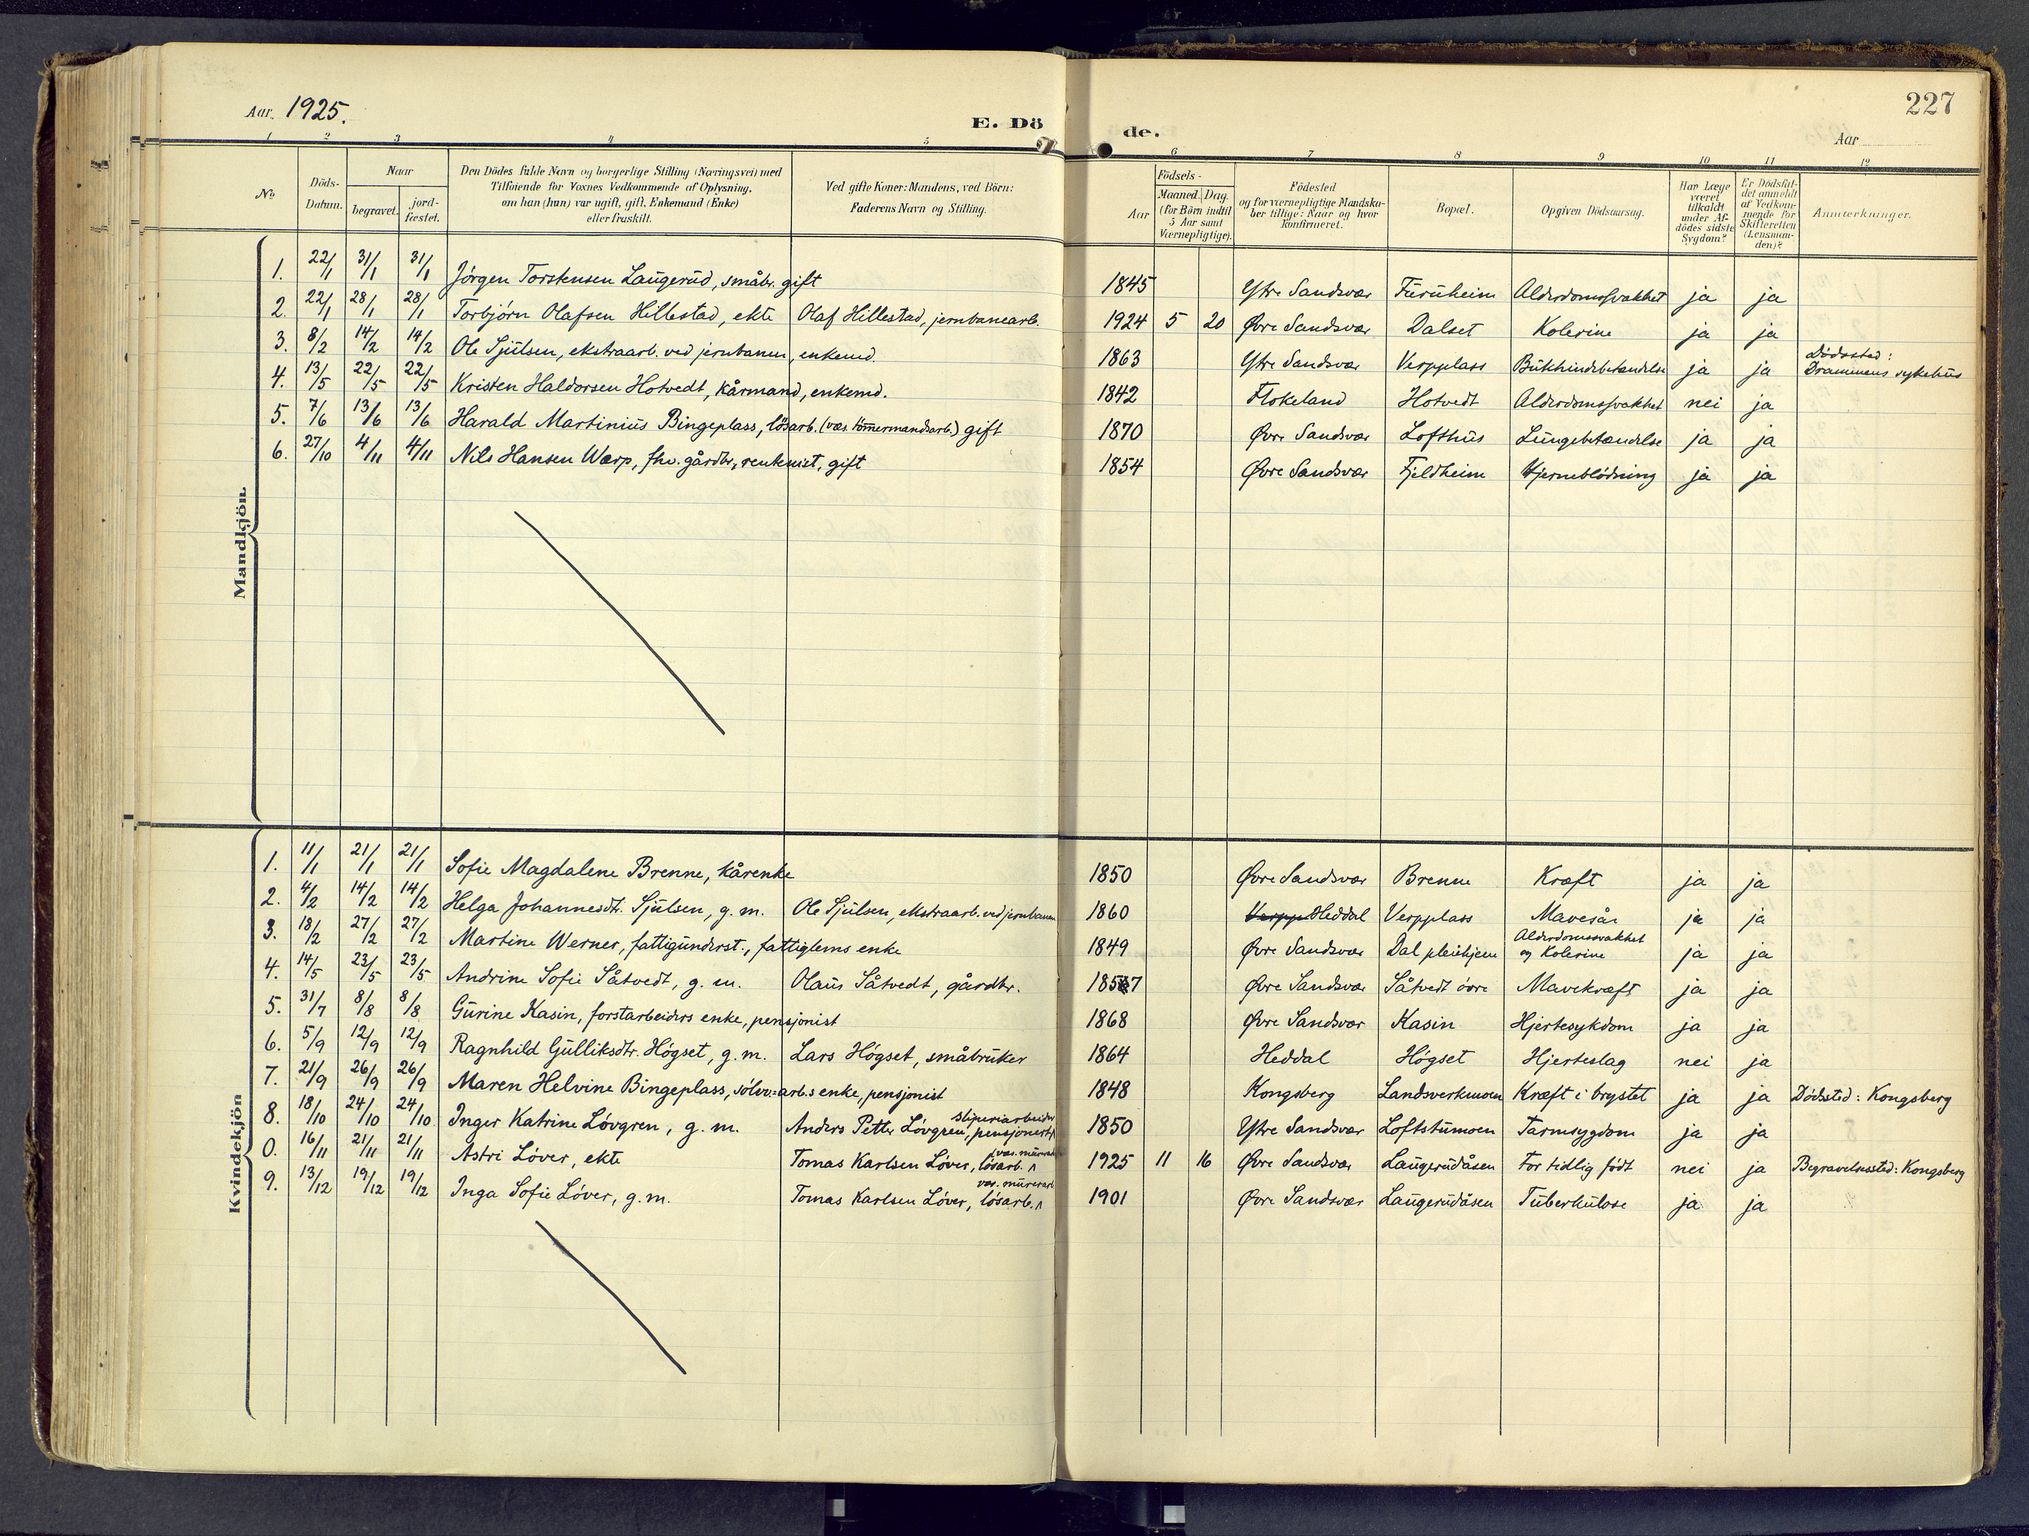 Aar. 1925.
E. Dö de.
227
Aar
1 2 3 4 5 6 7 8 9 10 11 12
No
Döds-Datum.
Naar begravet. jord-fæstet.
Den Dödes fulde Navn og borgerlige Stilling (Næringsvei) med Tilföiende for Voxnes Vedkommende af Oplysning, om han (hun) var ugift, gift, Enkemand (Enke) eller fraskilt.
Ved gifte Koner: Mandens, ved Börn: Faderens Navn og Stilling.
Födsels-
Aar Maaned. Dag. (for Börn indtil 5 Aar samt Værnepligtige).
Födested og for værnepligtige Mandskaber tillige: Naar og hvor konfirmeret.
Bopæl.
Opgiven Dödsaarsag.
Har Læge været tilkaldt under Afdödes sidste Sygdom?
Er Dödsfaldet anmeldt af Vedkommende for Skifteretten (Lensmanden)?
Anmerkninger.
Mandkjön.
1. 22/1 31/1 31/1 Jørgen Torstensen Laugerud, småbr. gift 1845 Ytre Sandsvær Furuheim Alderdomssvakhet ja ja
2. 22/1 28/1 28/1 Torbjørn Olafsen Hillestad, ekte Olaf Hillestad, jernbanearb. 1924 5 20 Øvre Sandsvær Dalset Kolerine ja ja
3. 8/2 14/2 14/2 Ole Sjulsen, ekstraarb. ved jernbanen, enkemd. 1863 Ytre Sandsvær Verpplass Bukhindebetændelse ja ja Dödssted: Drammens sykehus
4. 13/5 22/5 22/5 Kristen Haldorsen Hotvedt, kårmand, enkemd. 1842 Flokeland Hotvedt Alderdomssvakhet nei ja
5. 7/6 13/6 13/6 Harald Martinius Bingeplass, lösarb. (væs. tömmermandsarb.) gift 1870 Øvre Sandsvær Lofthus Lungebetændelse ja ja
6. 27/10 4/11 4/11 Nils Hansen Wærp, fhv. gårdbr., rentenist, gift 1854 Øvre Sandsvær Fjeldheim Hjerneblödning ja ja
Kvindekjön
1. 11/1 21/1 21/1 Sofie Magdalene Brenne, kårenke 1850 Øvre Sandsvær Brenne Kræft ja ja
2. 4/2 14/2 14/2 Helga Johannesdt. Sjulsen, g. m. Ole Sjulsen, ekstraarb. ved jernbanen 1860 Heddal Verpplass Mavesår ja ja
3. 18/2 27/2 27/2 Martine Werner, fattigunderst., fattiglems enke 1849 Øvre Sandsvær Dal pleiehjem Alderdomssvakhet og Kolerine ja ja
4. 14/5 23/5 23/5 Andrine Sofie Såtvedt, g. m. Olaus Såtvedt, gårdbr. 1857 Øvre Sandsvær Såtvedt övre Mavekræft ja ja
5. 31/7 8/8 8/8 Gurine Kasin, forstarbeiders enke, pensjonist 1868 Øvre Sandsvær Kasin Hjertesykdom ja ja
6. 5/9 12/9 12/9 Ragnhild Gulliksdtr. Högset, g. m. Lars Högset, småbruker 1864 Heddal Högset Hjerteslag nei ja
7. 21/9 26/9 26/9 Maren Helvine Bingeplass, sölvv.arb.s enke, pensjonist 1848 Kongsberg Landsverkmoen Kræft i brystet ja ja Dödssted: Kongsberg
8. 18/10 24/10 24/10 Inger Katrine Lövgren, g. m. Anders Petter Lövgren, sliperiarbeider, pensjonert 1850 Ytre Sandsvær Loftstumoen Tarmsygdom ja ja
0. 16/11 21/11 21/11 Astri Löver, ekte Tomas Karlsen Löver, lösarb. 1925 11 16 Øvre Sandsvær Laugerudåsen For tidlig født nei ja Begravelsessted: Kongsberg
9. 13/12 19/12 19/12 Inga Sofie Löver, g. m. Tomas Karlsen Löver, lösarb. væs. murerarb. 1901 Øvre Sandsvær Laugerudåsen Tuberkulose ja ja